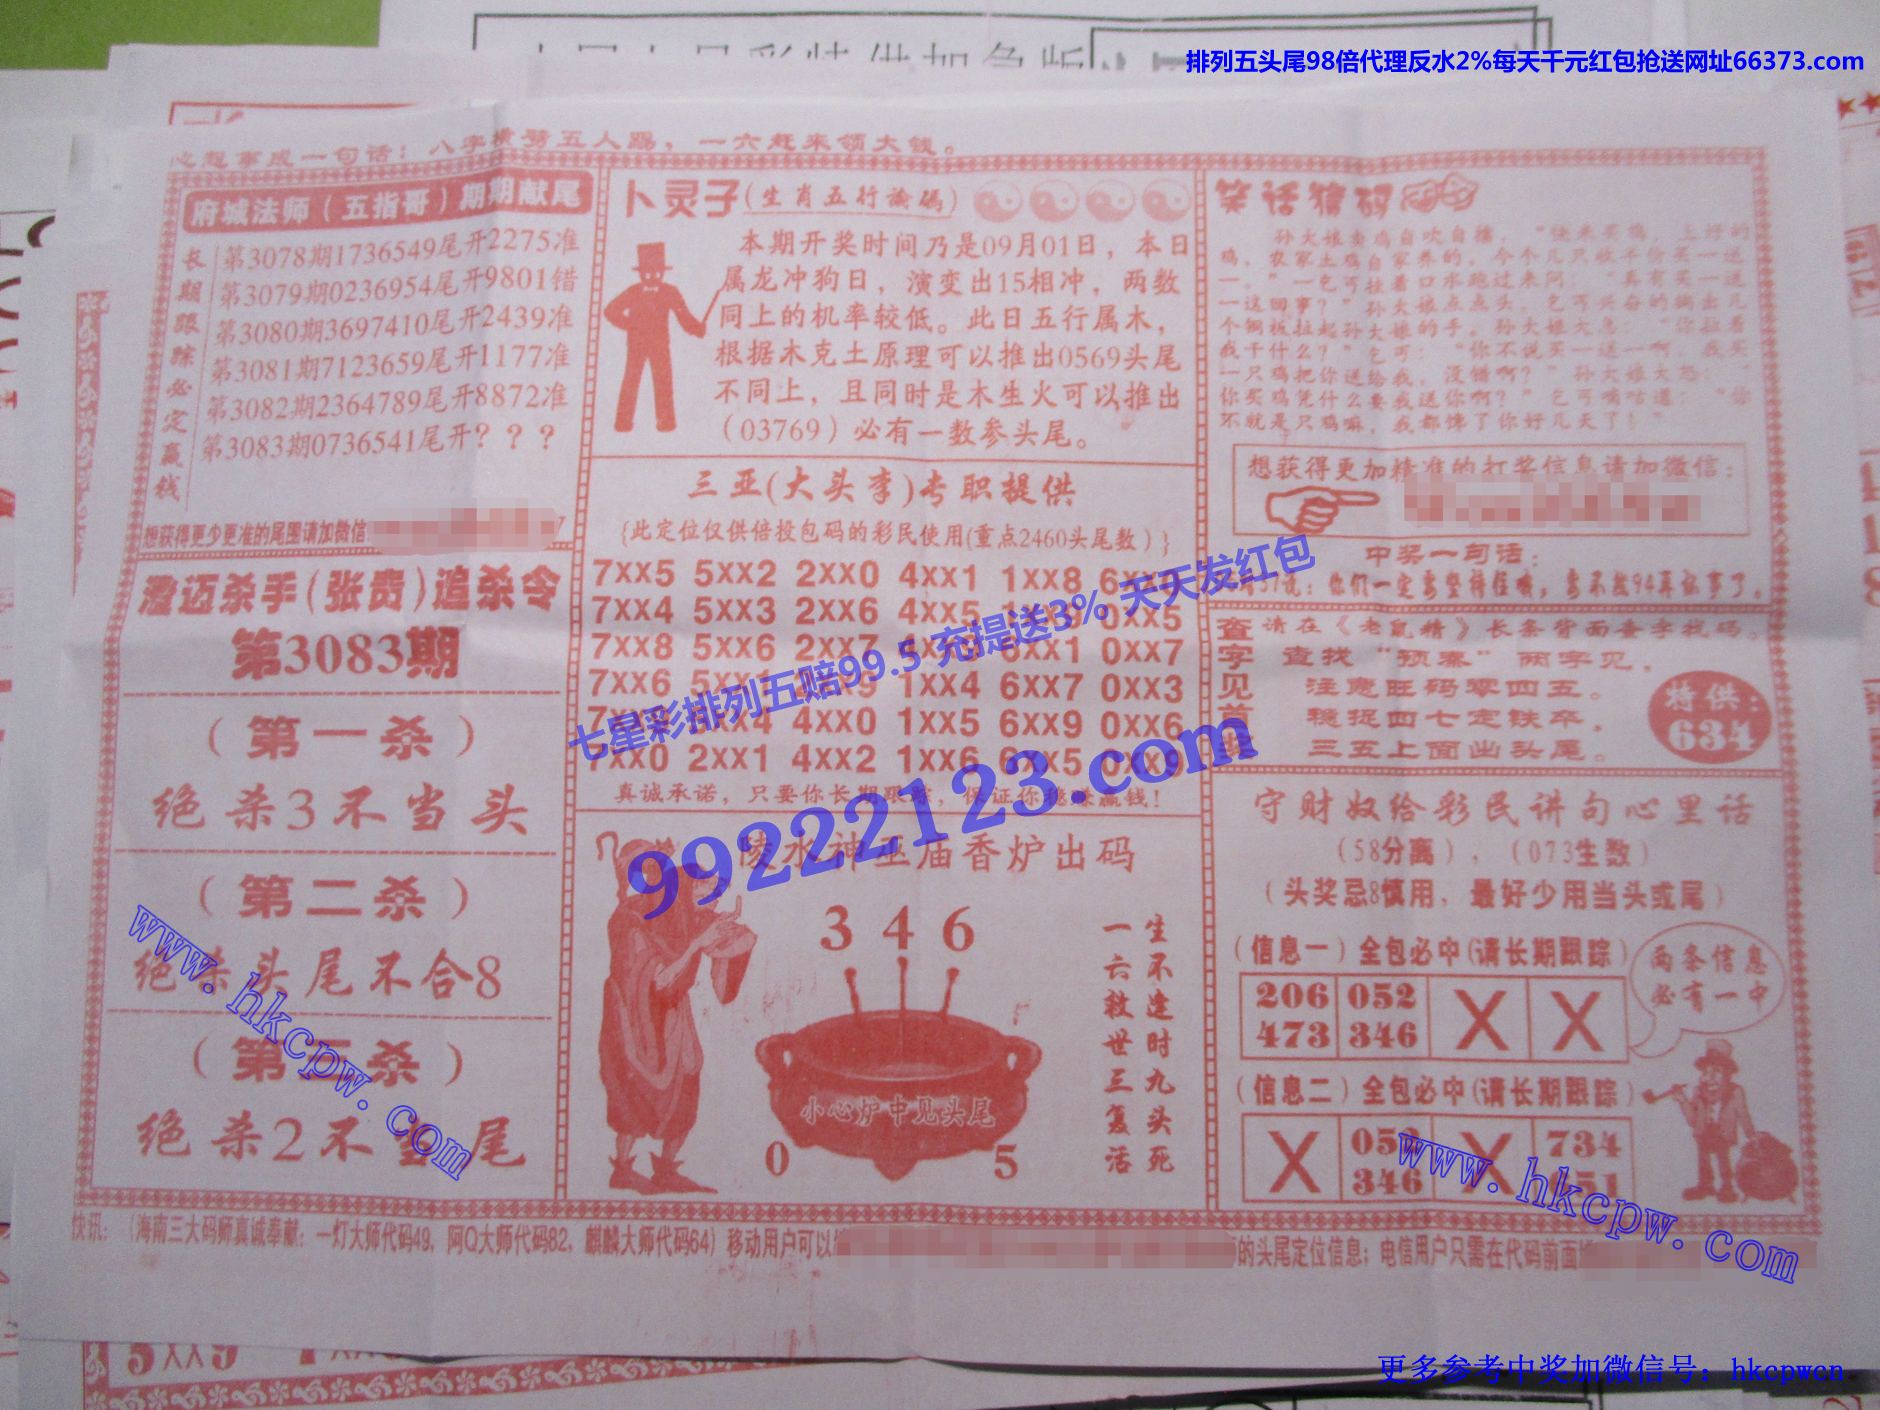 排列五头尾98倍代理反水2%每天千元红包抢送网址66373.com
心想事成一句话：八字横劈五人踢，一六赶来领大钱。
府城法师（五指哥）期期献尾
长期跟踪必定赢钱
第3078期1736549尾开2275准
第3079期0236954尾开9801错
第3080期3697410尾开2439准
第3081期7123659尾开1177准
第3082期2364789尾开8872准
第3083期0736541尾开？？？
想获得更少更准的尾图请加微信
澄迈杀手(张贵)追杀令
第3083期
（第一杀）
绝杀3不当头
（第二杀）
绝杀头尾不合8
（第三杀）
绝杀2不当尾
卜灵子(生肖五行论码)
本期开奖时间乃是09月01日，本日
属龙冲狗日，演变出15相冲，两数
同上的机率较低。此日五行属木，
根据木克土原理可以推出0569头尾
不同上，且同时是木生火可以推出
（03769）必有一数参头尾。
三亚(大头李)专职提供
{此定位仅供倍投包码的彩民使用(重点2460头尾数）}
7XX5 5XX2 2XX0 4XX1 1XX8
7XX4 5XX3 2XX6 4XX5 0XX5
7XX8 5XX6 2XX7 6XX1 0XX7
7XX6 1XX4 6XX7 0XX3
4XX0 1XX5 6XX9 0XX6
7XX0 2XX1 4XX2 1XX6 6XX5 0XX9
真诚承诺，只要你长期跟踪，保证你稳赚赢钱！
七星彩排列五赔99.5 充提送3% 天天发红包
99222123.com
陵水神巫庙香炉出码
3 4 6
小心炉中见头尾
0 5
生不逢时九头死
一六救世三复活
笑话猜码
孙大娘卖鸡自吹自擂，“快来买鸡，上好的
鸡，农家土鸡自家养的，今个儿只收半价买一送
一。”一乞丐拉着口水跑过来问：“真有买一送
一这回事？”孙大娘点点头，乞丐兴奋的掏出几
个铜板拉起孙大娘的手。孙大娘大急：“你拉着
我干什么？”乞丐：“你不说买一送一啊，我买
一只鸡把你送给我，没错啊？”孙大娘大怒：“
你买鸡凭什么要我送你啊？”乞丐嘀咕道：“你
不就是只鸡嘛，我都馋了你好几天了！”
想获得更加精准的打奖信息请加微信：
中奖一句话：
查字见首
请在《老鼠精》长条背面查字找码。
查找“预寨”两字见，
注意旺码零四五。
稳捉四七定铁卒，
三五上面出头尾。
特供：
634
守财奴给彩民讲句心里话
（58分离），（073生数）
（头奖忌8慎用，最好少用当头或尾）
（信息一）全包必中(请长期跟踪）
206 052 X X
473 346
两条信息
必有一中
（信息二）全包必中(请长期跟踪）
X 052 X 734
346 651
快讯：（海南三大码师真诚奉献：一灯大师代码49，阿Q大师代码82，麒麟大师代码64）移动用户可以 的头尾定位信息；电信用户只需在代码前面
www.hkcpw.com
www.hkcpw.com
5XX9
更多参考中奖加微信号：hkcpwcn